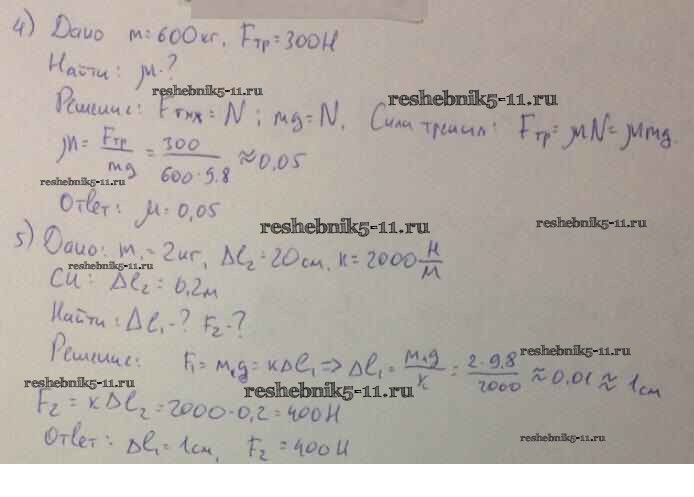 4) Дано m=600кг, Fтр=300Н
Найти: μ-?
reshebnik5-11.ru
Решение: Fтяж=N; mg=N. Сила трения: Fтр=μN=μmg.
reshebnik5-11.ru
μ=Fтр/mg=300/600·9.8≈0,05
reshebnik5-11.ru
Ответ: μ=0,05
reshebnik5-11.ru
reshebnik5-11.ru
5) Дано: m₁=2кг, Δl₂=20см, к=2000 Н/м
reshebnik5-11.ru
СИ: Δl₂=0,2м
Найти: Δl₁-? F₂-?
Решение: F₁=m₁g=кΔl₁⇒Δl₁=m₁g/к=2·9,8/2000≈0,01≈1см
reshebnik5-11.ru
reshebnik5-11.ru
reshebnik5-11.ru
F₂=кΔl₂=2000·0,2=400Н
Ответ: Δl₁=1см, F₂=400Н
reshebnik5-11.ru